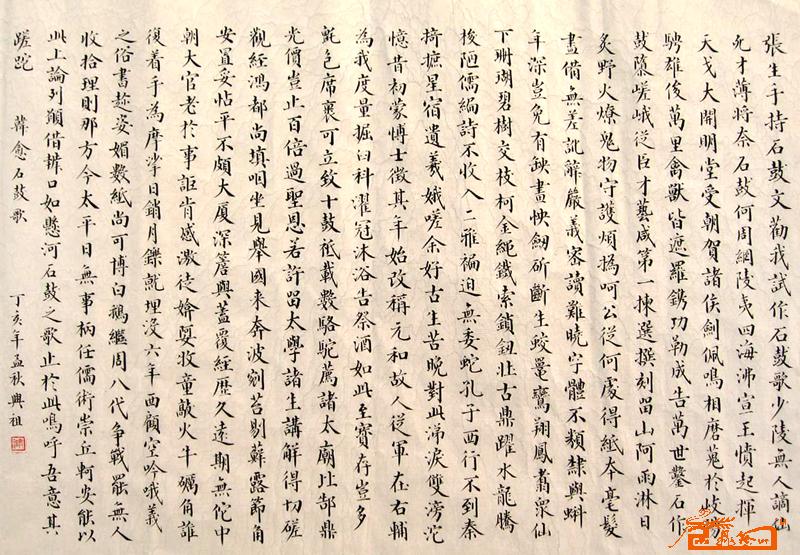 張生手持石鼓文勸我試作石鼓歌少陵無人謫仙
死才薄將奈石鼓何周綱陵夷四海沸宣王憤起揮
天戈大開明堂受朝賀諸侯劍佩鳴相磨蒐於岐陽
騁雄俊萬里禽獸皆遮羅鐫功勒成告萬世鑿石作
鼓隳嵯峨從臣才藝咸第一揀選撰刻留山阿雨淋日
炙野火燎鬼物守護煩撝呵公從何處得紙本毫髮
盡備無差訛辭嚴義密讀難曉字體不類隸與蝌
年深豈免有缺畫快劍斫斷生蛟鼉鸞翔鳳翥衆仙
下珊瑚碧樹交枝柯金繩鐵索鎖鈕壯古鼎躍水龍騰
梭陋儒編詩不收入二雅褊迫無委蛇孔子西行不到秦
掎摭星宿遺羲娥嗟余好古生苦晚對此涕淚雙滂沱
憶昔初蒙博士徵其年始改稱元和故人從軍在右輔
為我度量掘臼科濯冠沐浴告祭酒如此至寶存豈多
氈包席裹可立致十鼓祗載數駱駝薦諸太廟比郜鼎
光價豈止百倍過聖恩若許留太學諸生講解得切磋
觀經鴻都尚填咽坐見舉國來奔波剜苔剔蘚露節角
安置妥帖平不頗大廈深簷與蓋覆經歷久遠期無佗中
朝大官老於事詎肯感激徒媕婀牧童敲火牛礪角誰
復着手為摩挲日銷月鑠就埋沒六年西顧空吟哦羲
之俗書趁姿媚數紙尚可博白鵝繼周八代爭戰罷無人
收拾理則那方今太平日無事柄任儒術崇丘軻安能以
此上論列願借辨口如懸河石鼓之歌止於此嗚呼吾意其
蹉跎 韓愈石鼓歌 丁亥年孟秋興祖